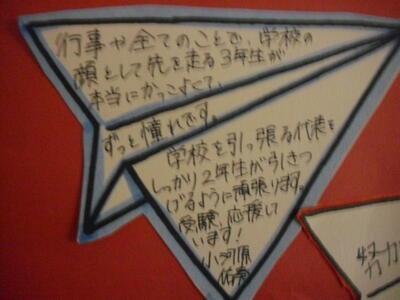 行事や全てのことで、学校の
顔として先を走る3年生が
本当にかっこよくて、
ずっと憧れです。
学校を引っ張る代表を
しっかり2年生が引きつ
げるように頑張ります。
受験、応援して
います！
小河原
努力